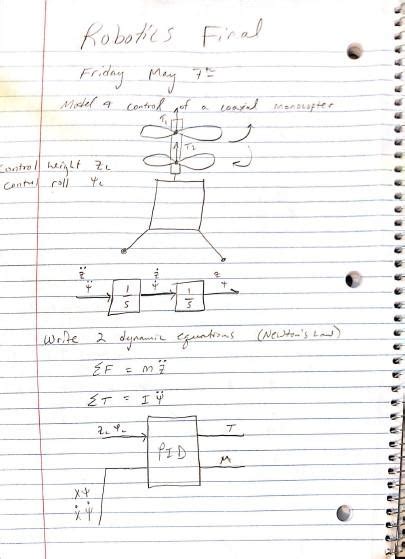 Robotics Final
Friday May 7th
Model & control of a coaxial monocopter
T₁
T₂
Control height z_c
Control roll ψ_c
z̈ ż z
ψ̈ ψ̇ ψ
1/S 1/S
Write 2 dynamic equations (Newton's Law)
ΣF = m z̈
ΣT = I ψ̈
z_c ψ_c T
PID
M
ẋ ψ̇